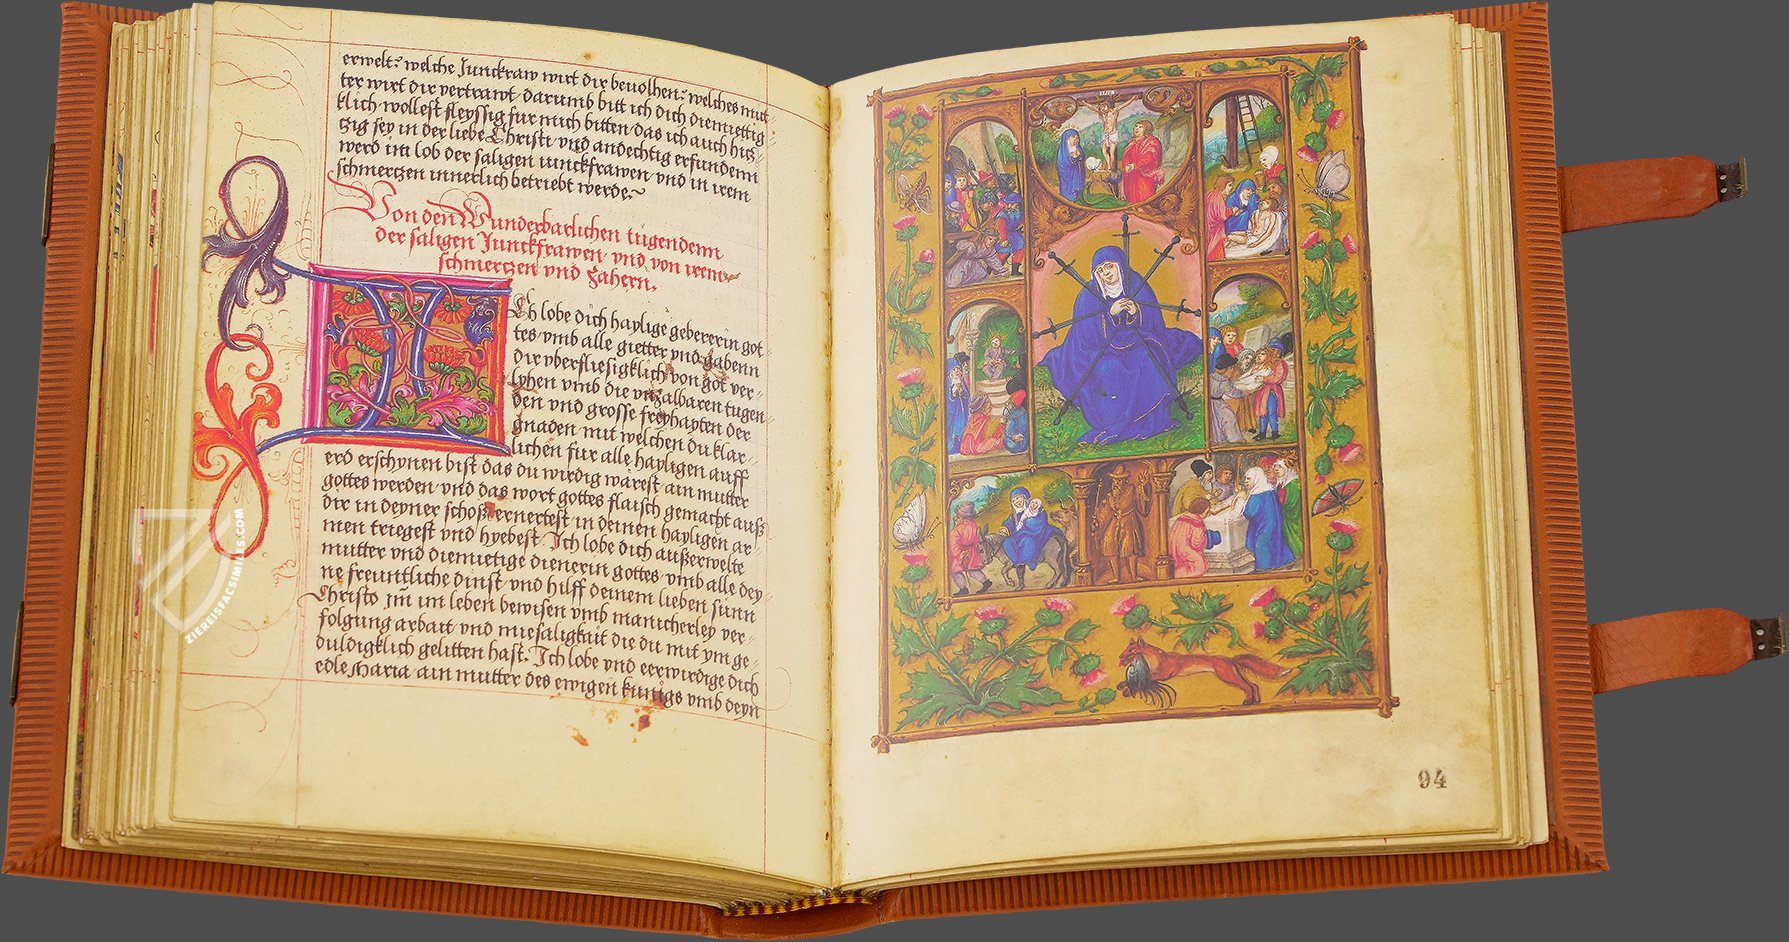 erwelt: welche Junckraw wirt dir beuolhen: welches mut
ter wirt dir vertrawt darumb bitt ich dich diemiettig
klich wollest fleyssig fur mich bitten das ich auch hitz
zig sey in der liebe Christi vnd andechtig erfundenn
werd im lob der saligen iunckfrawen vnd in irem
schmertzen innerlich betriebt werde
Von den Wunderbarlichen tugendenn
der saligen Junckfrawen vnd von irem
schmertzen vnd zahern.
Ich lobe dich haylige gebererin got
tes vmb alle gietter vnd gabenn
dir vberfliesigklich von got ver
lyhen vmb die vnzalbaren tugen
den vnd grosse freyhayten der
gnaden mit welchen du klar
lichen fur alle hayligen auff
erd erschynen bist das du wirdig warest ain mutter
gottes werden vnd das wort gottes flaisch gemacht auß
dir in deyner schoß ernertest in deinen hayligen ar
men triegest vnd hyebest. Ich lobe dich außerwelte
mutter vnd diemietige dienerin gottes vmb alle dey
ne freuntliche dinst vnd hilff deinem lieben sunn
Christo im leben bewisen vmb manicherley ver
folgung arbait vnd miesaligkait die du mit ym ge
duldigklich gelitten hast. Ich lobe vnd eerwirdige dich
edle Maria ain mutter des ewigen kunigs vmb deyn
94
ZIEREISFACSIMILES.COM